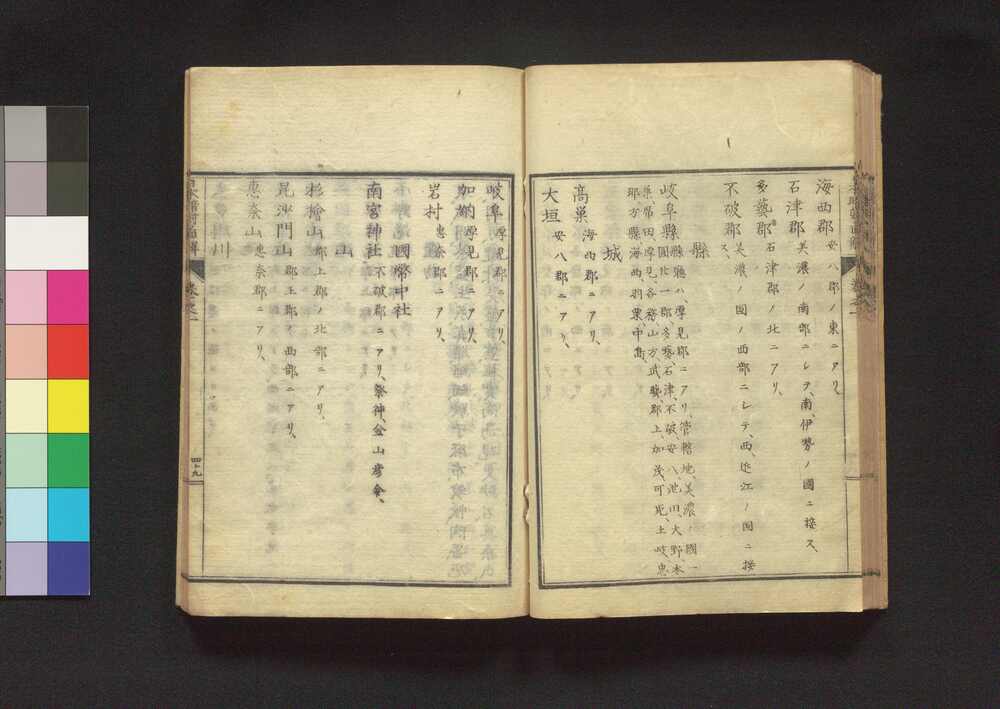 海西郡 安八郡ノ東ニアリ、
石津郡 美濃ノ南部ニシテ、南、伊勢ノ國ニ接ス、
多藝郡 石津郡ノ北ニアリ、
不破郡 美濃ノ國ノ西部ニシテ、西、近江ノ國ニ接
ス、
縣
岐阜縣 縣廳ハ、厚見郡ニアリ、管轄地、美濃ノ國一
圓、北一郡、多藝、石津、不破、安八、池田、大野、本
巣、席田、厚見、各務、山方、武藝、郡上、加茂、可児、土岐、恵
那、方縣、海西、羽栗、中島、
城
高巣 海西郡ニアリ、
大垣 安八郡ニアリ、
岐阜 厚見郡ニアリ、
加納 厚見郡ニアリ、
岩村 惠奈郡ニアリ、
國幣中社
南宮神社 不破郡ニアリ、祭神、金山彦命、
山
杉檜山 郡上郡ノ北部ニアリ、
毘沙門山 郡上郡ノ西部ニアリ、
恵奈山 恵奈郡ニアリ、
川
卷之一
四十九